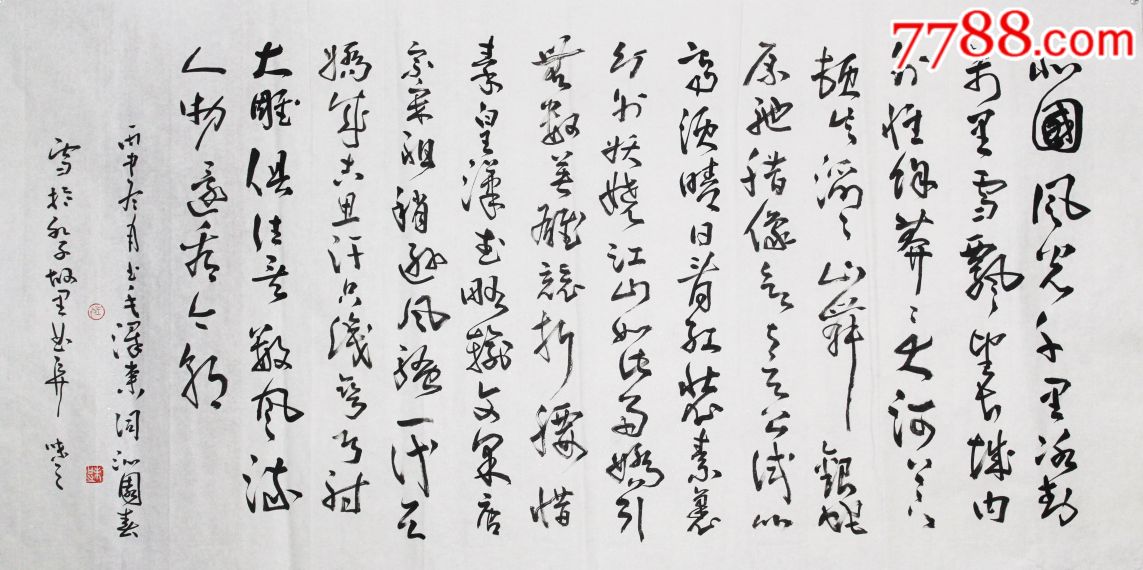 7788.com
北國風光千里冰封
萬里雪飄望長城内
外惟餘莽〻大河上下
頓失滔〻山舞銀蛇
原馳蜡像欲与天公試比
高須晴日看紅裝素裹
分外妖嬈江山如此多嬌引
無數英雄競折腰惜
秦皇漢武略輸文采唐
宗宋祖稍遜風騷一代天
嬌成吉思汗只識彎弓射
大雕俱往矣數風流
人物還看今朝
丙申冬月書毛澤東詞沁園春
雪於孔子故里曲阜